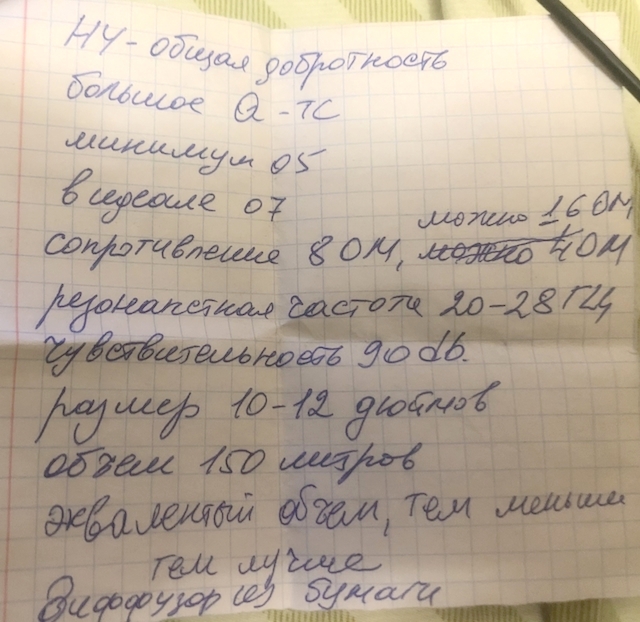 НЧ - общая добротность
большое Q - ТС
минимум 05
в идеале 07
можно 16 ОМ
сопротивление 8 ОМ, можно 4 ОМ
резонапстная частота 20-28 ГЦ
чувствительность 90 db.
размер 10-12 дюймов
объем 150 литров
эквалентый объем, тем меньше
тем лучше
Диффузор из бумаги